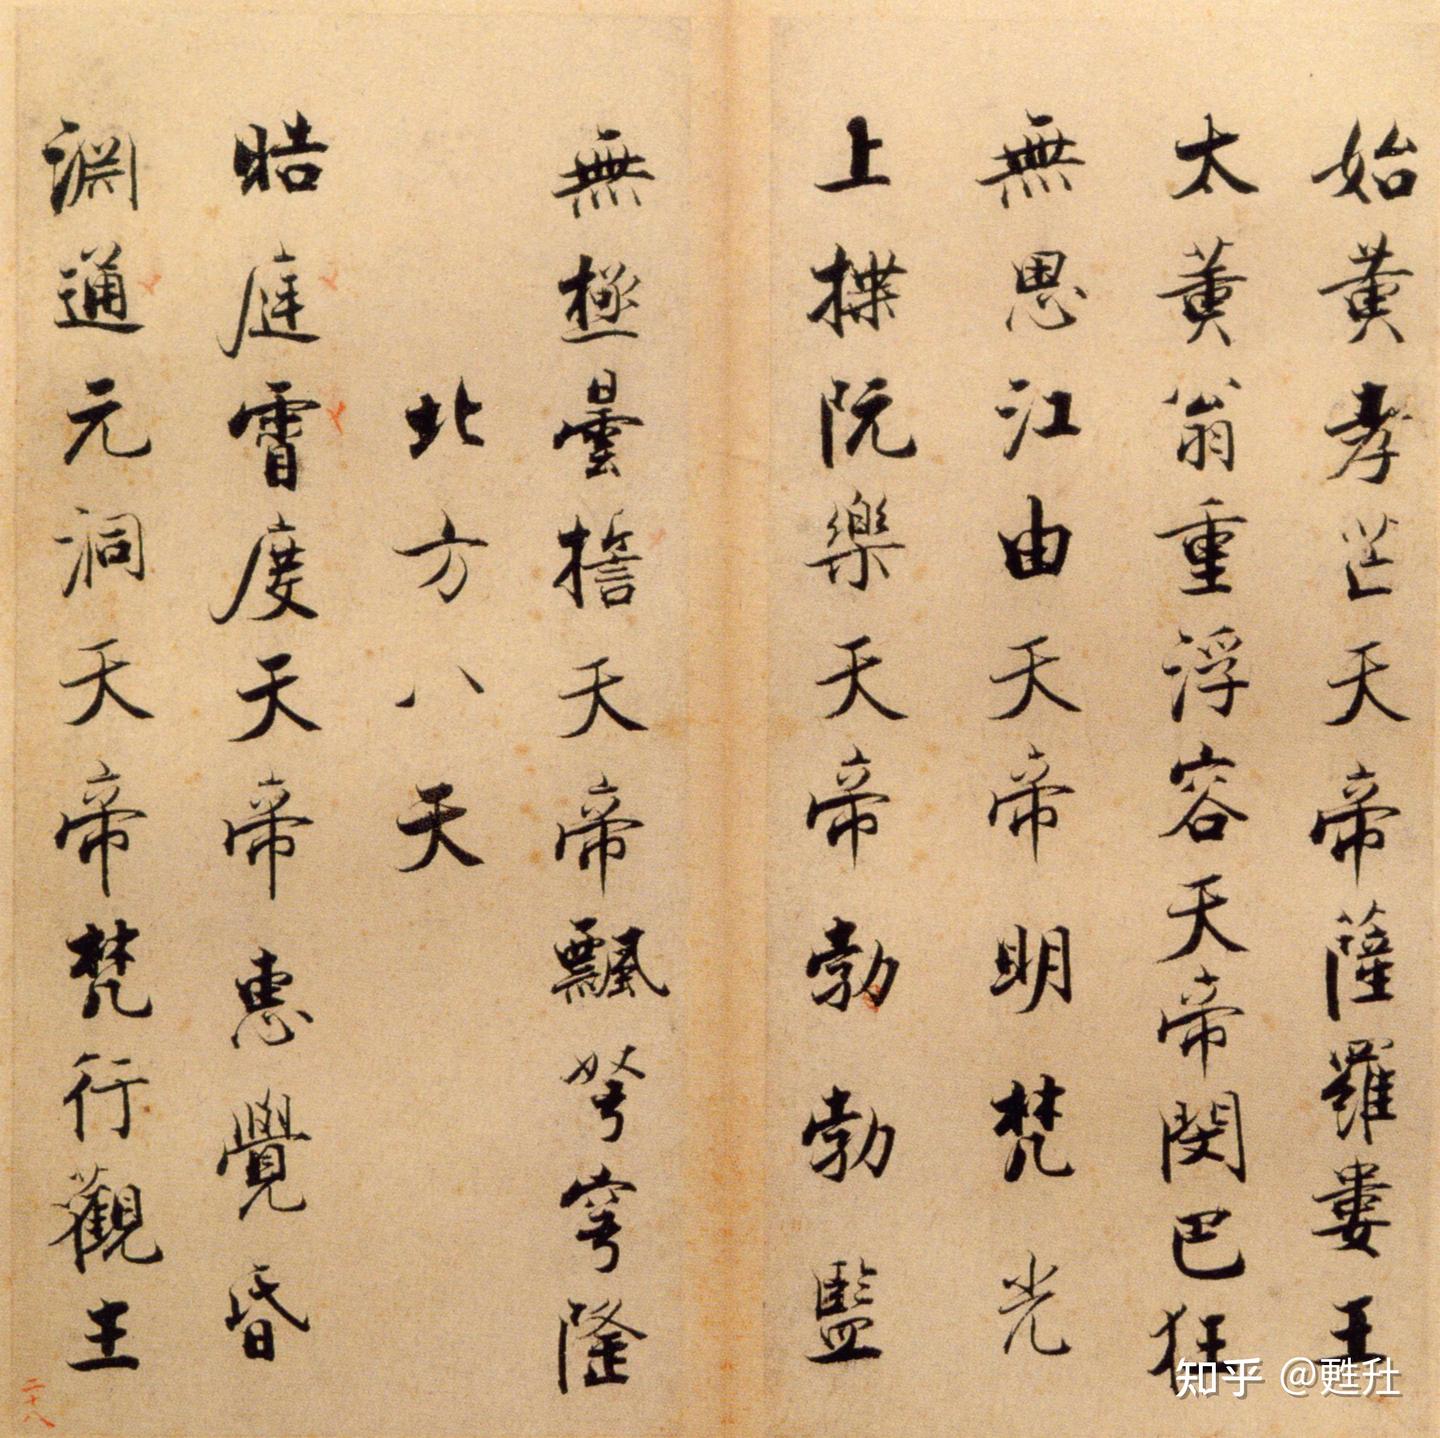 始黄孝芒天帝薩羅婁王
太黄翁重浮容天帝閔巴狂
無思江由天帝明梵光
上揲阮樂天帝勃勃監
無極曇誓天帝飄弩穹隆
北方八天
皓庭霄度天帝惠覺昏
淵通元洞天帝梵行觀主
二十八
知乎 @甦玍